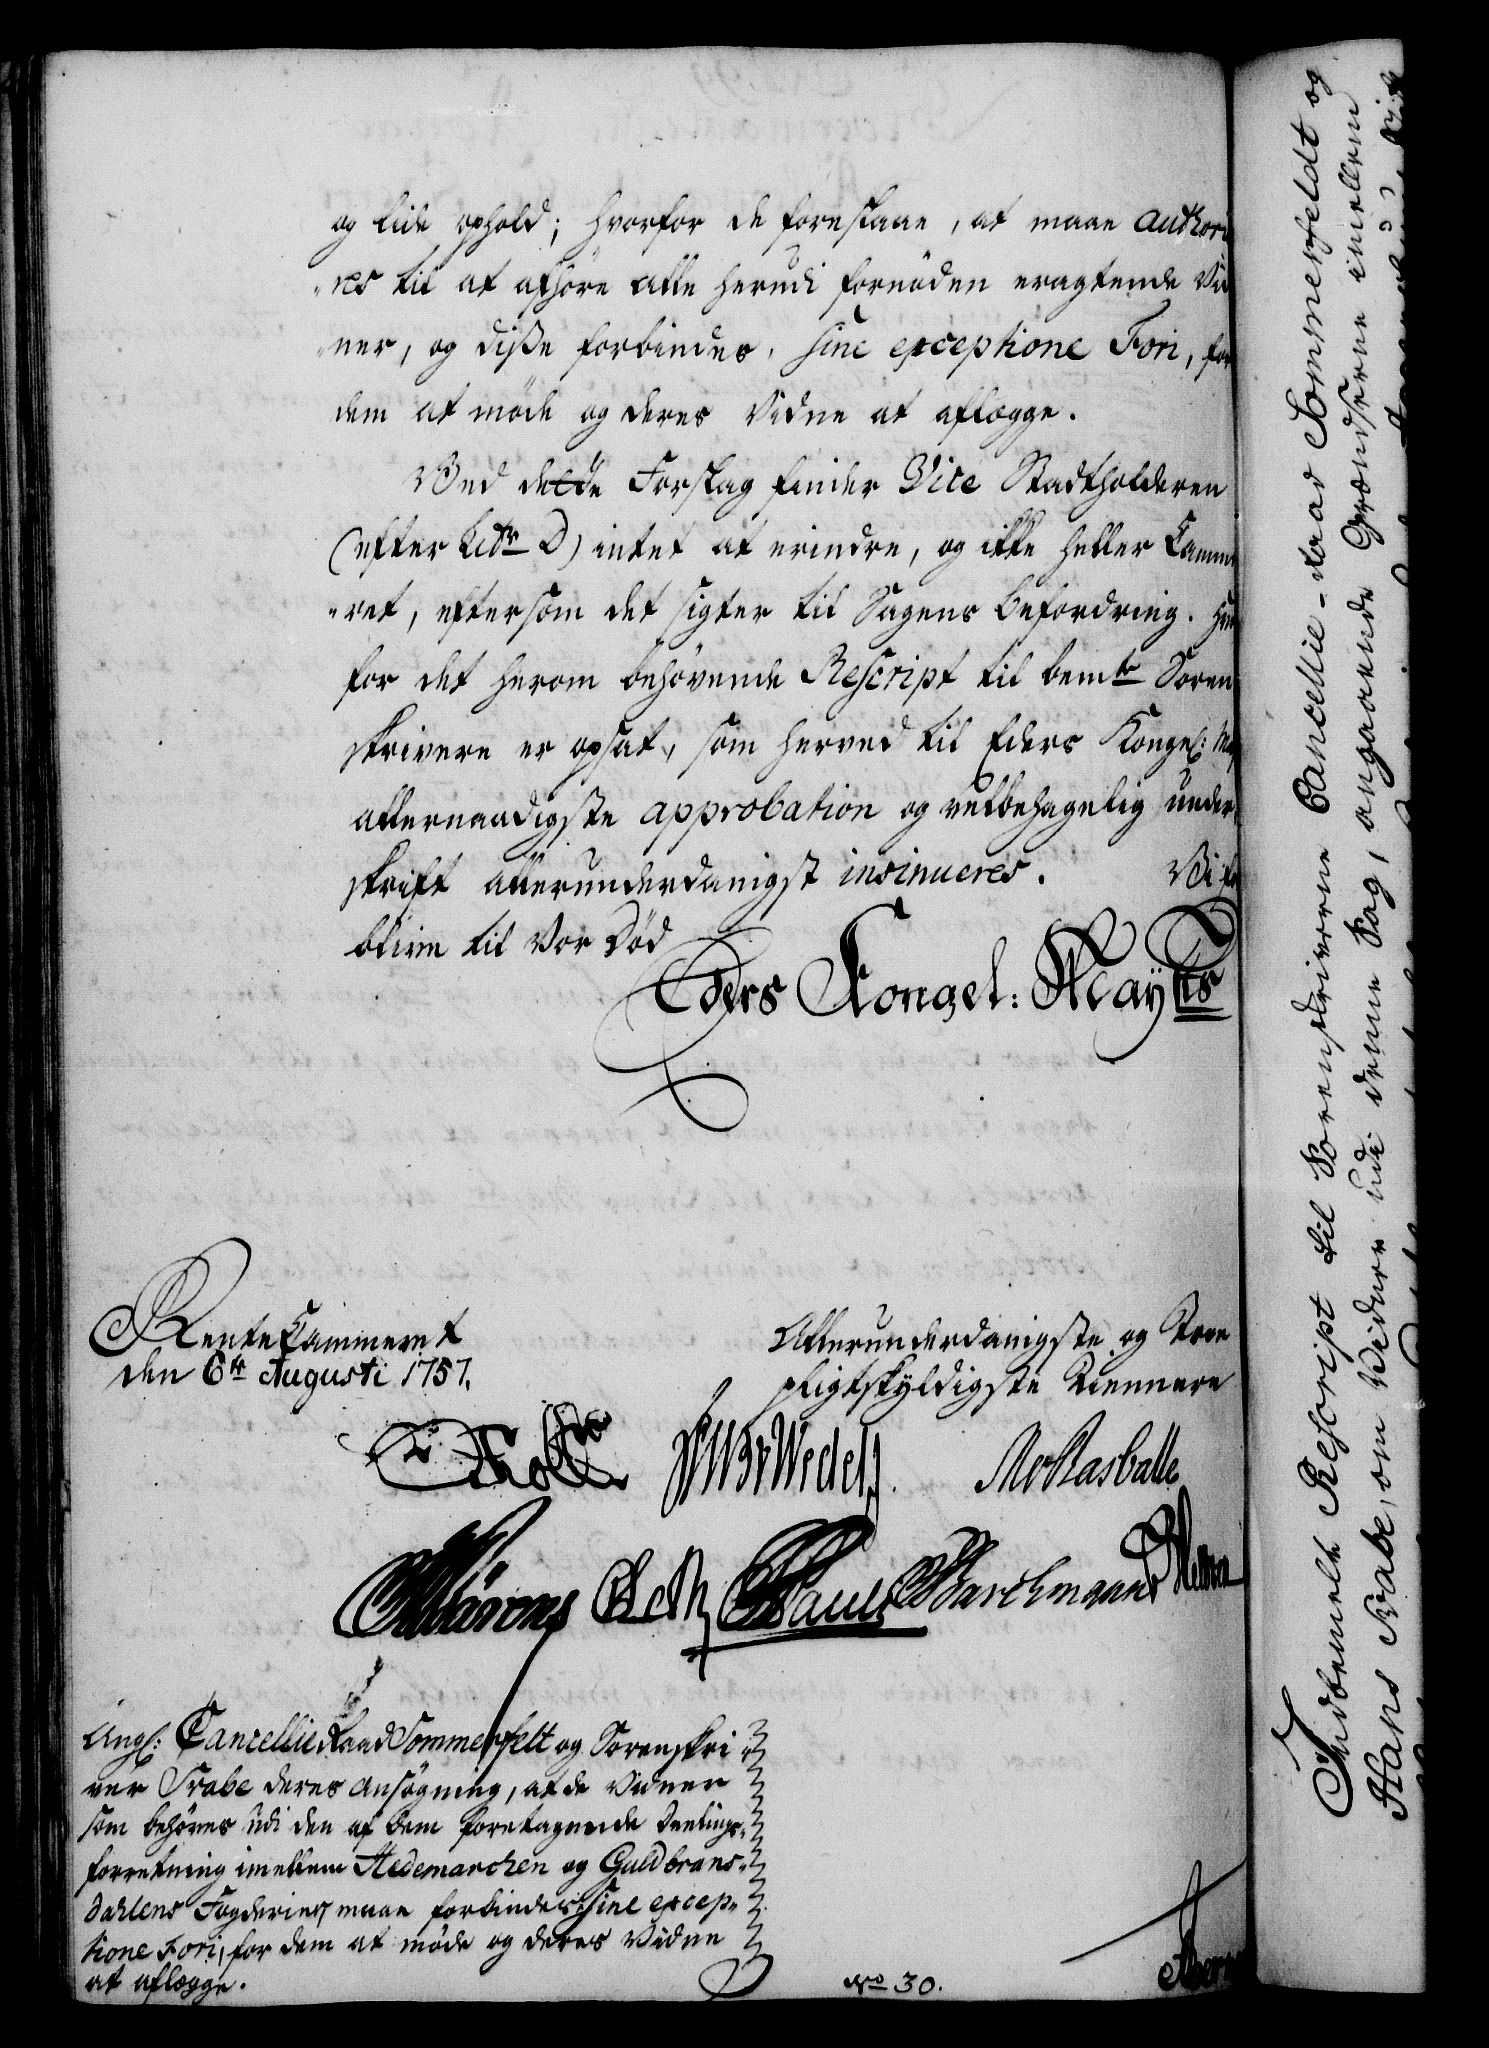 og lide ophold; hvorfor de foreslaae, at maae authori
"res til at afhöre alle herudi fornöden eragtende Vid
"ner, og diße forbindes, sine exceptione Fori, for
dem at möde og deres Vidne at aflægge.
Ved dette Forslag finder Vice Stadtholderen
(efter Litr D) intet at erindre, og ikke heller Camme
"ret, eftersom det sigter til Sagens befordring. Hvor
for det herom behövende Rescript til bemte Soren
skrivere er opsat, som herved til Eders Kongel: May
allernaadigste approbation og velbehagelig under
skrift allerunderdanigst insinueres. Vi for
blive til vor Död
Eders Kongel: Mayts
RenteCammeret
den 6te Augusti 1757.
Allerunderdanigste og Troe
pligtskyldigste Tiennere
Holstein
Wedel
Rasballe
Pauli Barchmann
Angl: CancellieRaad Sommerfelt og Sorenskri
ver Svabe deres ansögning, at de Vidner
som behöves udi den af dem foretagende Deelings-
forretning imellem Hedemarchen og Guldbrans-
dahlens Fogderier, maae forbindes, sine excep-
tione Fori, for dem at möde og deres Vidne
at aflægge.
No 30.
Indbemelte Rescript til Sorenskriverne Cancellie-Raad Sommerfeldt og
Hans Svabe, om Vidner udi denne Sag, angaaende Grændserne imellem